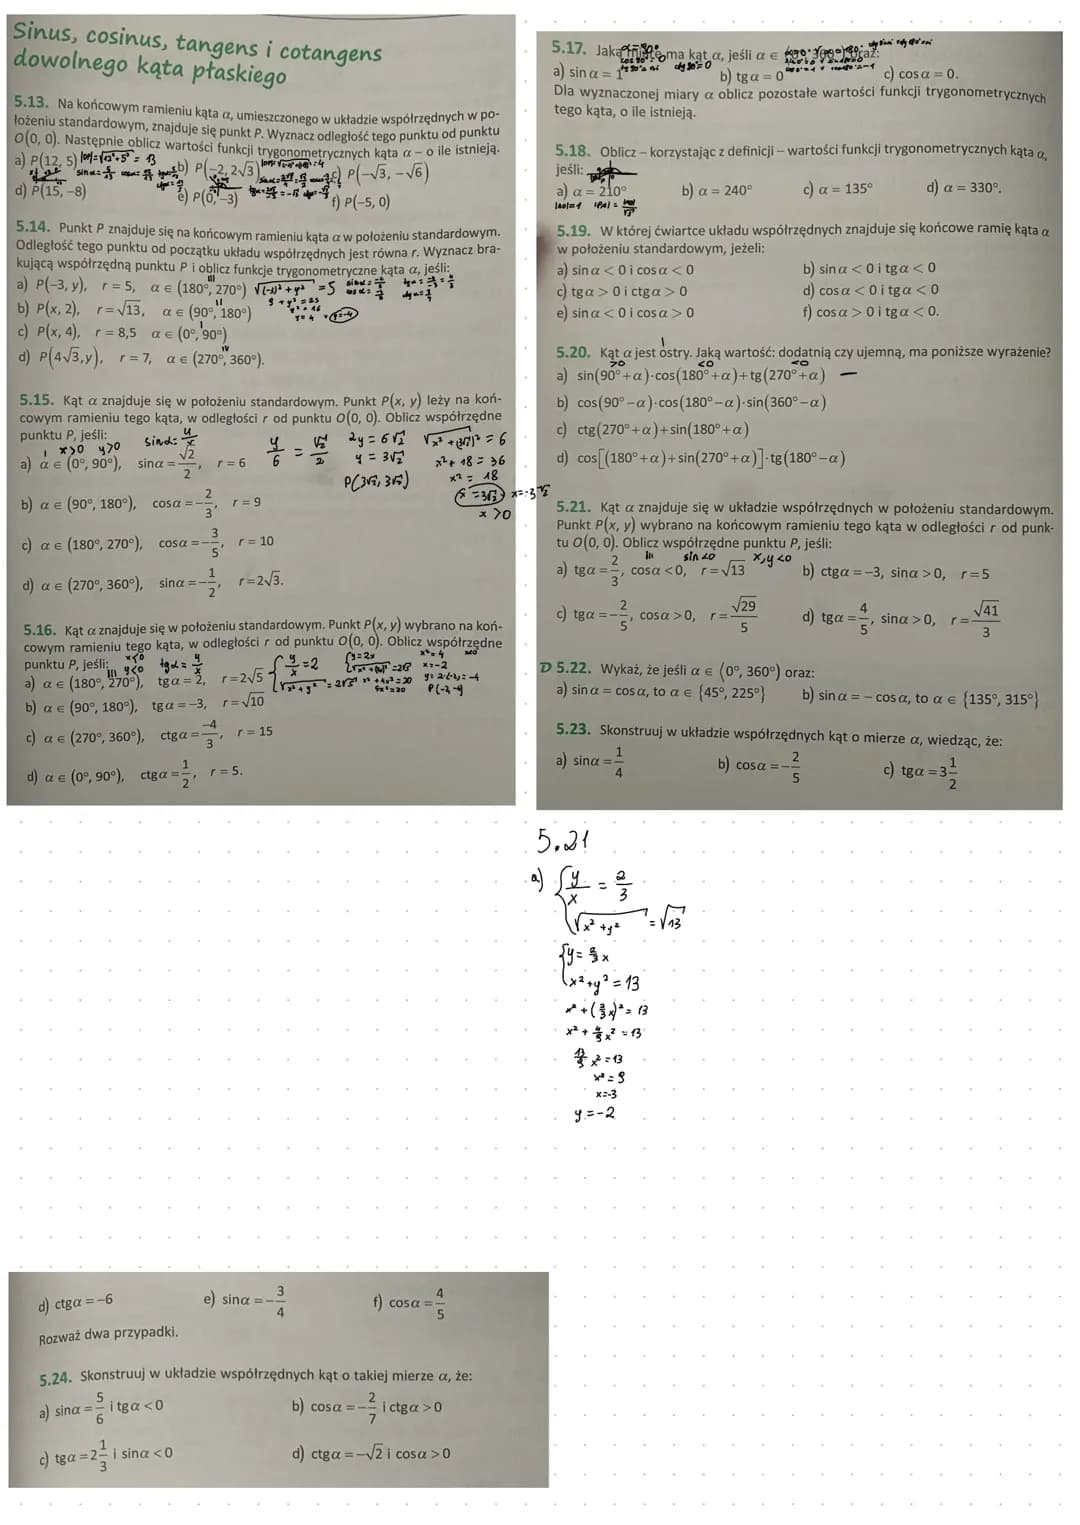 Sinus, cosinus, tangens i cotangens
dowolnego kąta płaskiego
5.13. Na końcowym ramieniu kąta α, umieszczonego w układzie współrzędnych w po-
łożeniu standardowym, znajduje się punkt P. Wyznacz odległość tego punktu od punktu
O(0, 0). Następnie oblicz wartości funkcji trygonometrycznych kąta α – o ile istnieją.
a) P(12, 5) |OP|=√12²+5² = 13 b) P(−2, 2√3) c) P(−√3, −√6)
d) P(15, −8) e) P(0, −3) f) P(−5, 0)
5.14. Punkt P znajduje się na końcowym ramieniu kąta α w położeniu standardowym.
Odległość tego punktu od początku układu współrzędnych jest równa r. Wyznacz bra-
kującą współrzędną punktu P i oblicz funkcje trygonometryczne kąta α, jeśli:
III
a) P(−3, y), r = 5, α ∈ (180°, 270°) √(-3)² + y² = 5
9 + y² = 25
y² = 16
y = 4 v y=-4
II
b) P(x, 2), r = √13, α ∈ (90°, 180°)
I
c) P(x, 4), r = 8,5 α ∈ (0°, 90°)
IV
d) P(4√3,y), r = 7, α ∈ (270°, 360°).
5.15. Kąt α znajduje się w położeniu standardowym. Punkt P(x, y) leży na koń-
cowym ramieniu tego kąta, w odległości r od punktu O(0, 0). Oblicz współrzędne
punktu P, jeśli:
I x>0 y>0 sinα= y/r
a) α ∈ (0°, 90°), sinα = √2/2, r = 6
y/6 = √2/2
2y = 6√2
y = 3√2
P(3√2, 3√2)
√x² + (3√2)² = 6
x² + 18 = 36
x² = 18
x = 3√2 x=-3√2
x >0
b) α ∈ (90°, 180°), cosα = −2/3, r = 9
c) α ∈ (180°, 270°), cosα = −3/5, r = 10
d) α ∈ (270°, 360°), sinα = −1/2, r = 2√3.
5.16. Kąt α znajduje się w położeniu standardowym. Punkt P(x, y) wybrano na koń-
cowym ramieniu tego kąta, w odległości r od punktu O(0, 0). Oblicz współrzędne
punktu P, jeśli:
III x<0 y<0 tgα = y/x
a) α ∈ (180°, 270°), tgα = 2, r = 2√5
y/x = 2
√x² + y² = 2√5
y = 2x
√x² + (2x)² = 2√5
x² + 4x² = 20
5x² = 20
x² = 4 x<0
x = -2
y = 2·(-2) = -4
P(-2, -4)
b) α ∈ (90°, 180°), tgα = −3, r = √10
c) α ∈ (270°, 360°), ctgα = −4/3, r = 15
d) α ∈ (0°, 90°), ctgα = 1/2, r = 5.
5.17. Jaką ma kąt α, jeśli α ∈
a) sin α = 1 b) tg α = 0 c) cos α = 0.
Dla wyznaczonej miary α oblicz pozostałe wartości funkcji trygonometrycznych
tego kąta, o ile istnieją.
5.18. Oblicz – korzystając z definicji – wartości funkcji trygonometrycznych kąta α,
jeśli:
a) α = 210° b) α = 240° c) α = 135° d) α = 330°.
5.19. W której ćwiartce układu współrzędnych znajduje się końcowe ramię kąta α
w położeniu standardowym, jeżeli:
a) sin α < 0 i cos α < 0 b) sin α < 0 i tg α < 0
c) tg α > 0 i ctg α > 0 d) cos α < 0 i tg α < 0
e) sin α < 0 i cos α > 0 f) cos α > 0 i tg α < 0.
I
5.20. Kąt α jest ostry. Jaką wartość: dodatnią czy ujemną, ma poniższe wyrażenie?
>0 <0 <0
a) sin(90° + α)·cos(180° + α) + tg(270° + α) –
b) cos(90° − α)·cos(180° − α)·sin(360° − α)
c) ctg(270° + α) + sin(180° + α)
d) cos[(180° + α) + sin(270° + α)]·tg(180° − α)
5.21. Kąt α znajduje się w układzie współrzędnych w położeniu standardowym.
Punkt P(x, y) wybrano na końcowym ramieniu tego kąta w odległości r od punk-
tu O(0, 0). Oblicz współrzędne punktu P, jeśli:
III sin <0 x,y <0
a) tgα = 2/3, cosα < 0, r = √13 b) ctgα = −3, sinα > 0, r = 5
c) tgα = −2/5, cosα > 0, r = √29/5 d) tgα = 4/5, sinα > 0, r = √41/3
D 5.22. Wykaż, że jeśli α ∈ ⟨0°, 360°) oraz:
a) sin α = cos α, to α ∈ {45°, 225°} b) sin α = − cos α, to α ∈ {135°, 315°}
5.23. Skonstruuj w układzie współrzędnych kąt o mierze α, wiedząc, że:
a) sinα = 1/4 b) cosα = −2/5 c) tgα = 3 1/2
5.21
a) y/x = 2/3
√x² + y² = √13
y = 2/3 x
x² + y² = 13
x² + (2/3 x)² = 13
x² + 4/9 x² = 13
13/9 x² = 13
x² = 9
x = -3
y = -2
d) ctgα = −6 e) sinα = −3/4 f) cosα = 4/5
Rozważ dwa przypadki.
5.24. Skonstruuj w układzie współrzędnych kąt o takiej mierze α, że:
a) sinα = 5/6 i tgα < 0 b) cosα = −2/7 i ctgα > 0
c) tgα = 2 1/3 i sinα < 0 d) ctgα = −√2 i cosα > 0